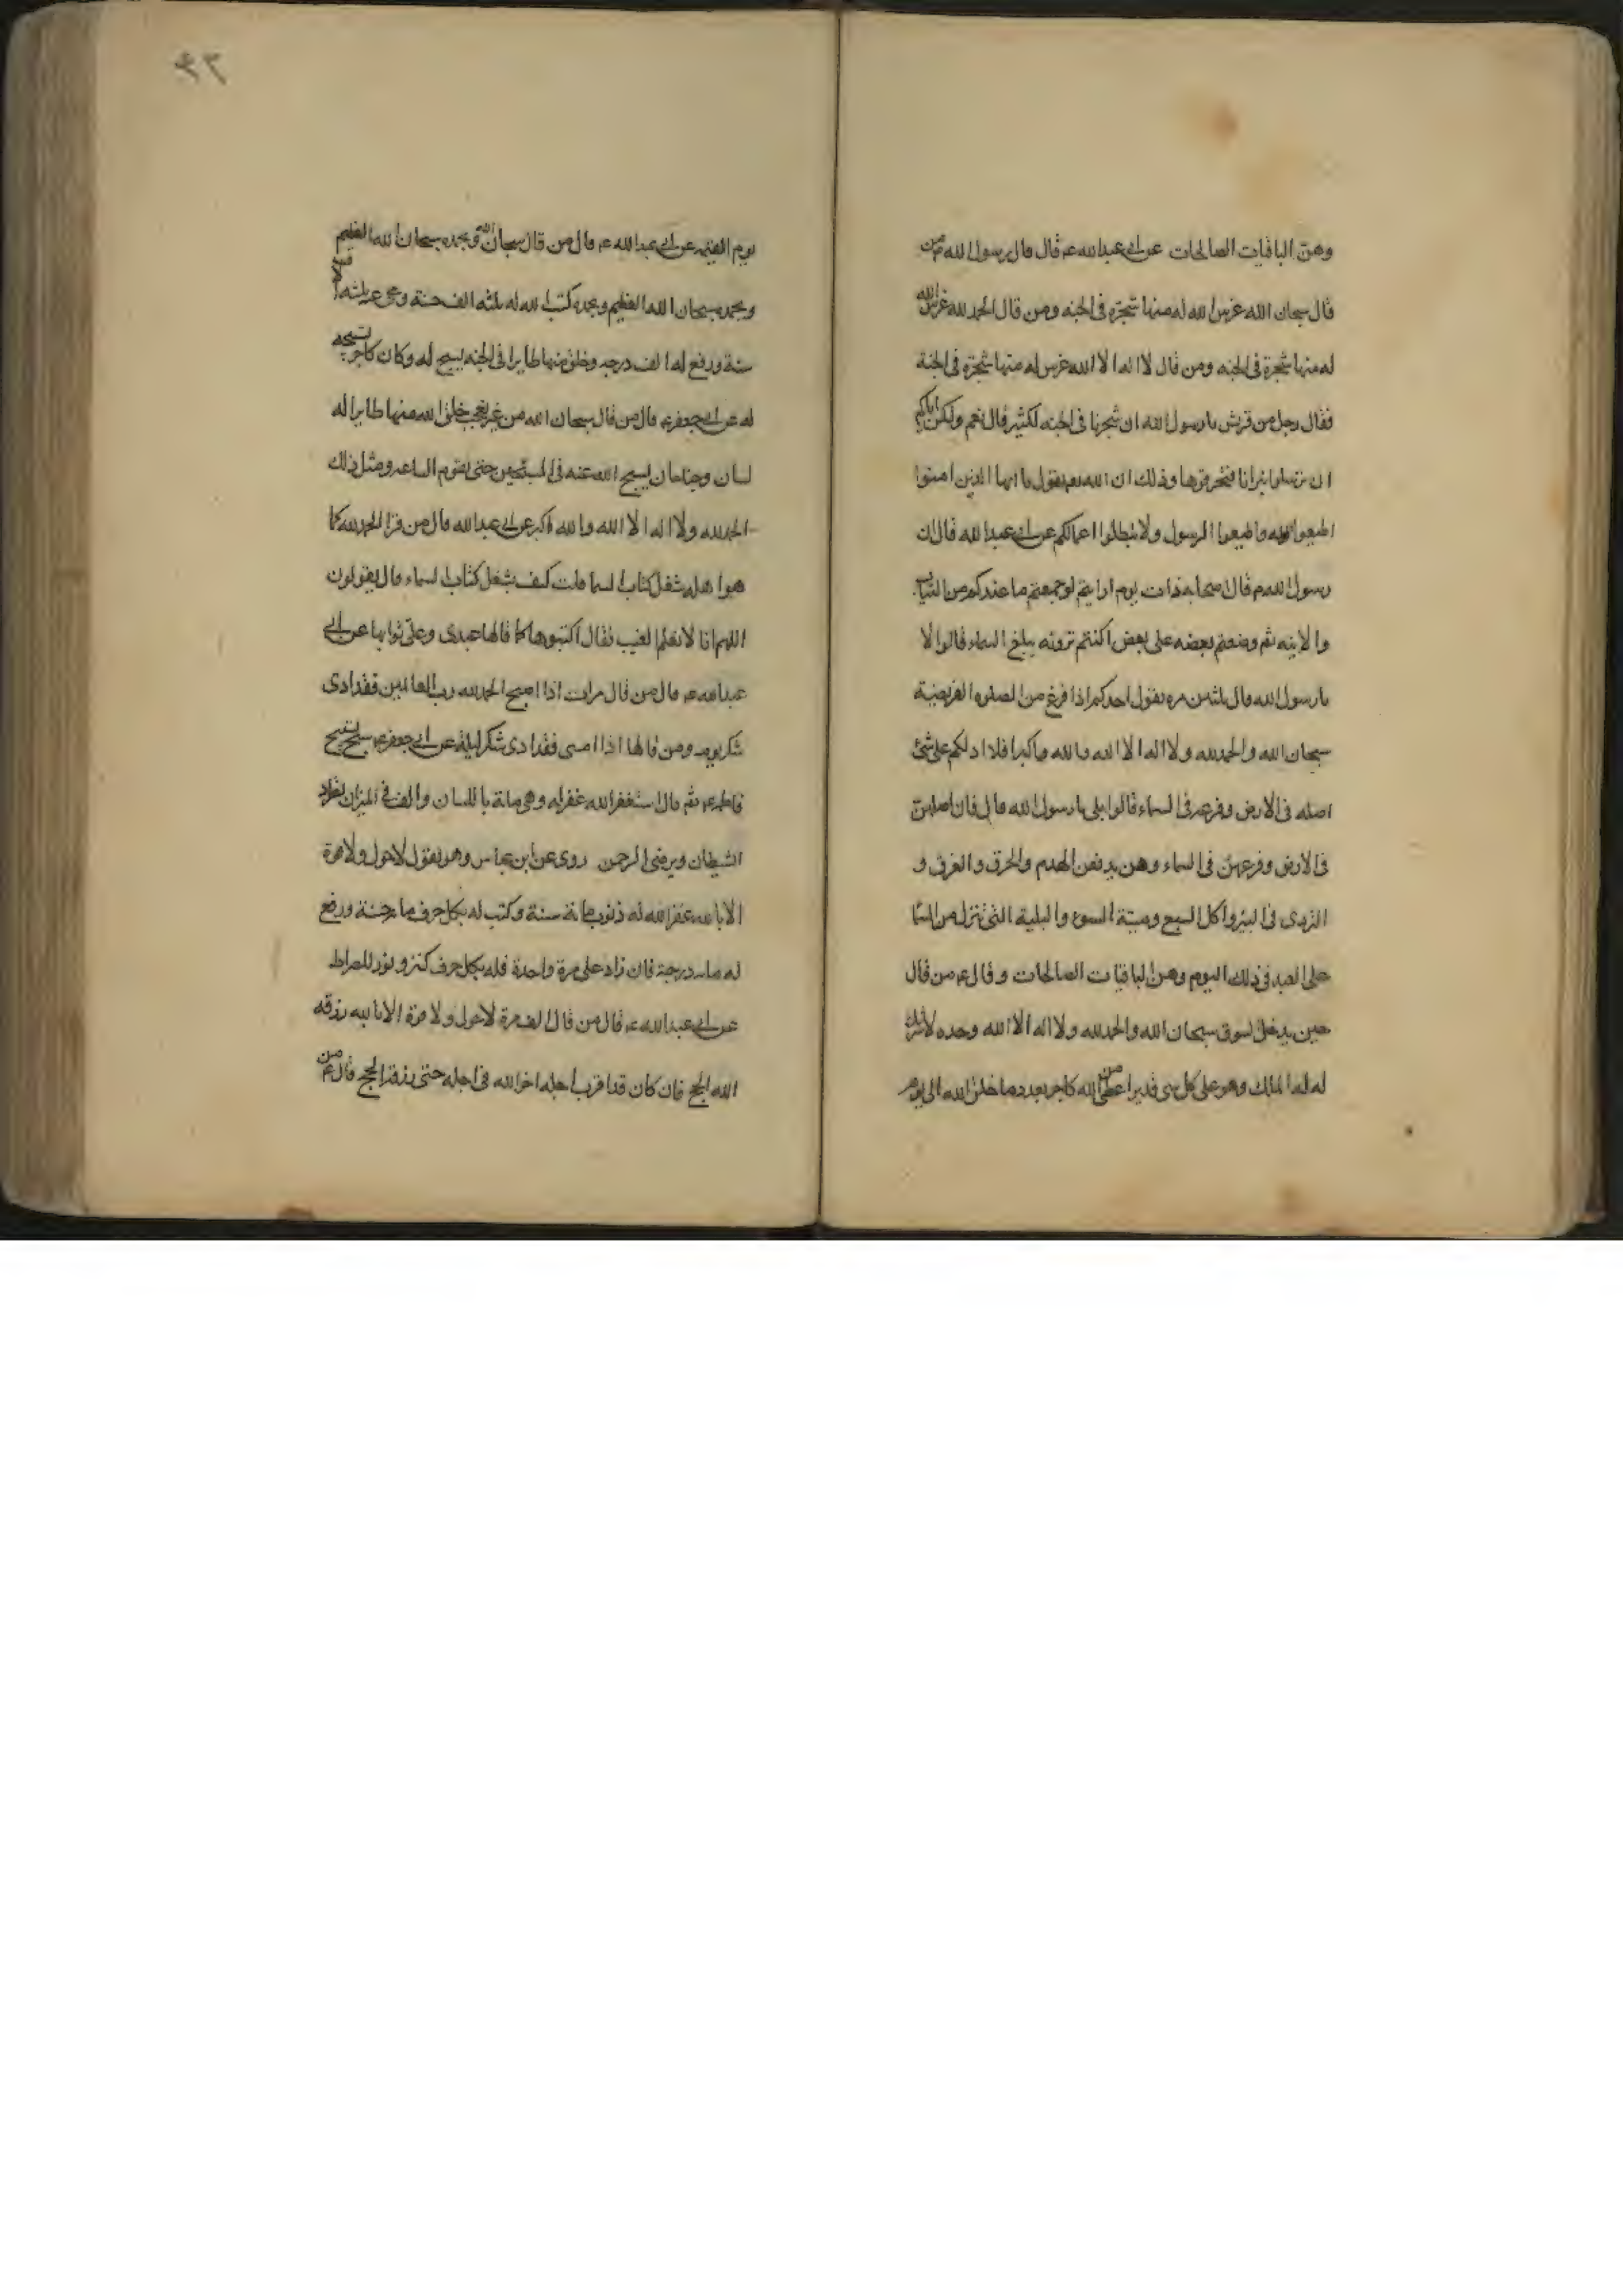 وهن الباقيات الصالحات عن ابى عبدالله ع قال قال رسول الله ص من
قال سبحان الله غرس الله له منها شجرة فى الجنه ومن قال الحمد لله غرس الله
له منها شجرة فى الجنه ومن قال لا اله الا الله غرس له منها شجرة فى الجنة
فقال رجل من قريش يا رسول الله ان شجرنا فى الجنه لكثير قال نعم ولكن اياكم
ان ترسلوا نيرانا فتحرقوها وذلك ان الله تعم يقول يا ايها الذين امنوا
اطيعوا الله واطيعوا الرسول ولا تبطلوا اعمالكم عن ابى عبد الله قال ان
رسول الله ص قال لاصحابه ذات يوم ارايتم لو جمعتم ما عندكم من الثياب
والابنيه ثم وضعتم بعضه على بعض اكنتم ترونه يبلغ السماء قالوا لا
يا رسول الله قال ثلثين مره يقول احدكم اذا فرغ من الصلوه الفريضة
سبحان الله والحمدلله ولا اله الا الله والله واكبر افلا ادلكم على شئ
اصله فى الارض وفرعه فى السماء قالوا بلى يا رسول الله قال فان اصلهن
فى الارض وفرعهن فى السماء وهن يدفعن الهدم والحرق والغرق و
التردى فى البئر واكل السبع وميتة السوء والبلية التى تنزل من السما
على العبد فى ذلك اليوم وهن الباقيات الصالحات وقال ع من قال
حين يدخل السوق سبحان الله والحمدلله ولا اله الا الله وحده لا شريك
له له الملك وهو على كل شى قدير اعطى الله من كاجر بعدد ما خلق الله الى يوم
٤٣
يوم القيمه عن ابى عبدالله ع قال من قال سبحان الله وبحمده سبحان الله العظيم
وبحمده سبحان الله العظيم وبحمده كتب الله له ثلثه الف حسنة ومحى عنه ثلثه الاف
سنة ورفع له الف درجه وخلق منها طايرا فى الجنه يسبح له وكان كاجر تسبيحه
له عن ابى جعفر ع قال من قال سبحان الله من غير تعجب خلق الله منها طايرا له
لسان وجناحان يسبح الله عنه فى المسبحين حتى تقوم الساعه ومثل ذلك
الحمدلله ولا اله الا الله والله اكبر عن ابى عبدالله قال من قرا الحمدلله كما
هو اهله شغل كتاب السما قلت كيف يشغل كتاب السماء قال يقولون
اللهم انا لا نعلم الغيب فقال اكتبوها كما قالها عبدى وعلى ثوابها عن ابى
عبدالله ع قال من قال مرات اذا اصبح الحمدلله رب العالمين فقد ادى
شكر يومه ومن قالها اذا امسى فقد ادى شكر ليلة عن ابى جعفر ع من سبح تسبيح
فاطمه ع ثم قال استغفر الله غفر له وهى مائة باللسان والف فى الميزان تطرد
الشيطان ويرضى الرحمن روى عن ابن عباس وهو يقول لا حول ولا قوة
الا بالله غفر الله له ذنوب مائة سنة وكتب له بكل حرف مايه حسنة ورفع
له مايه درجة فان زاد على مرة واحدة فله بكل حرف كنز ونور للصراط
عن ابى عبدالله ع قال من قال الف مرة لا حول ولا قوة الا بالله رزقه
الله الحج فان كان قد اقرب اجله اخر الله فى اجله حتى رزقه الحج قال ع من